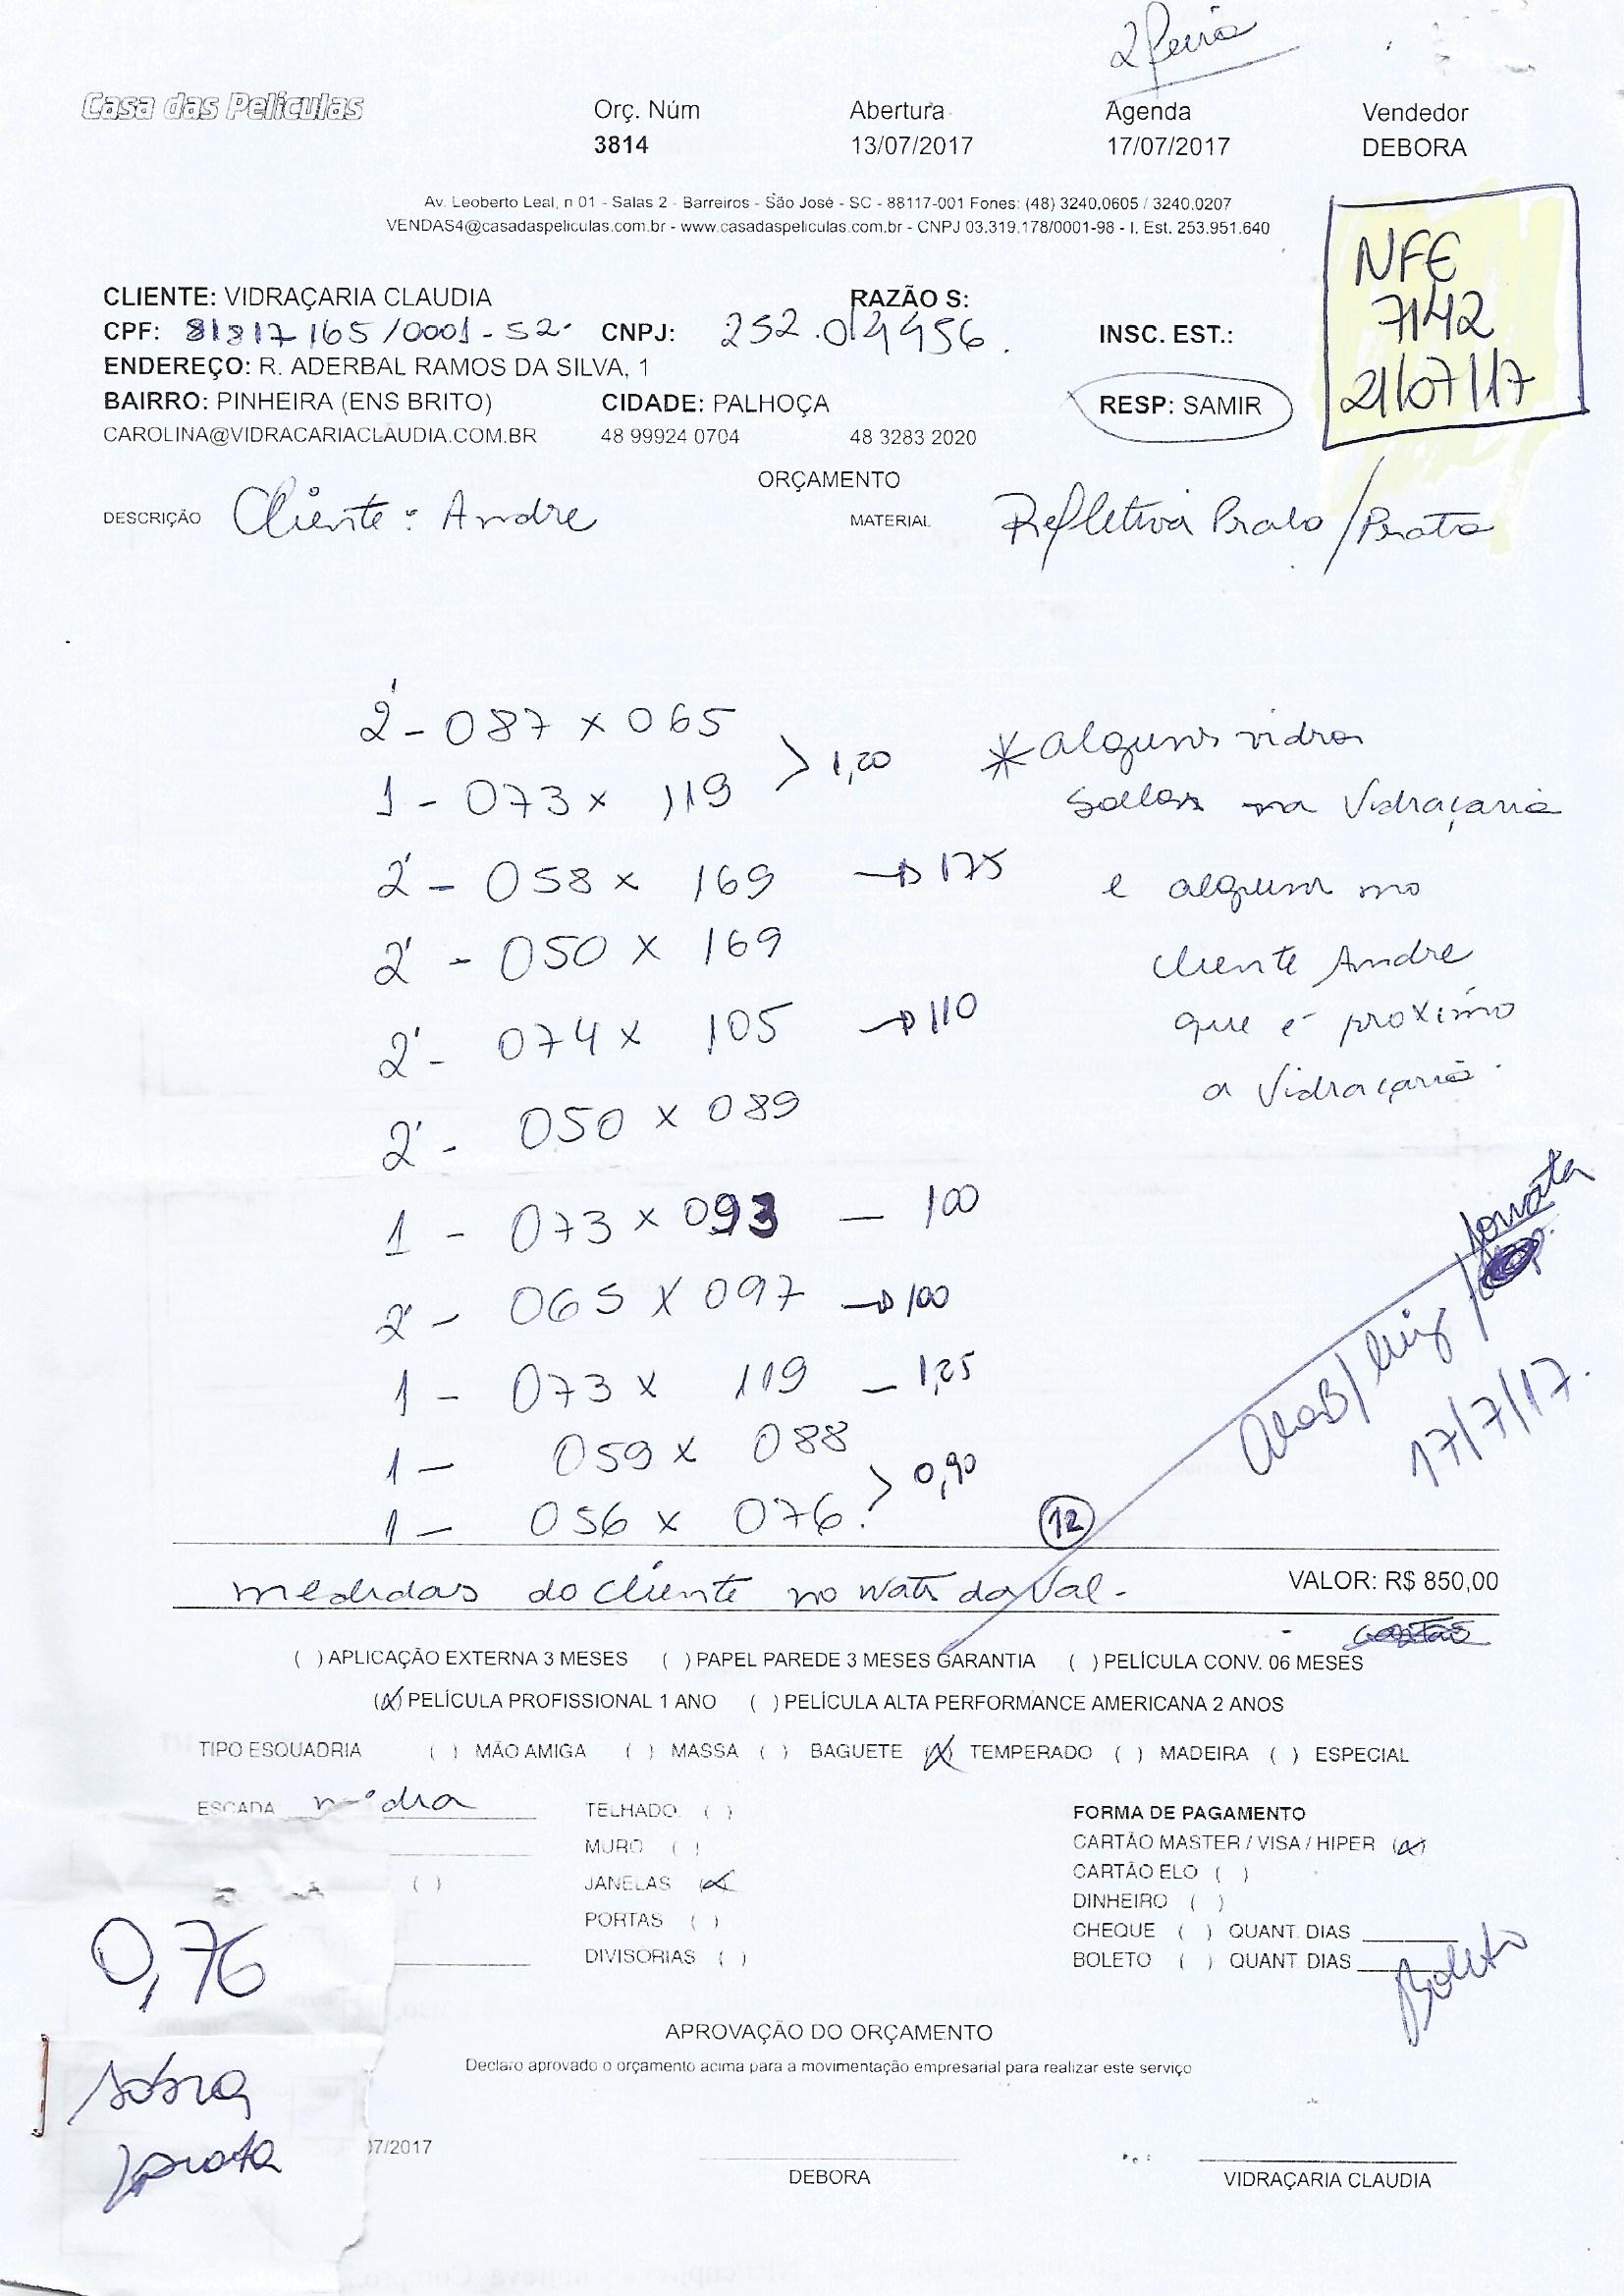 2 feira
Casa das Películas
Orç. Núm Abertura Agenda Vendedor
3814 13/07/2017 17/07/2017 DEBORA
Av. Leoberto Leal, n 01 - Salas 2 - Barreiros - São José - SC - 88117-001 Fones: (48) 3240.0605 / 3240.0207
VENDAS4@casadaspeliculas.com.br - www.casadaspeliculas.com.br - CNPJ 03.319.178/0001-98 - I. Est. 253.951.640
NFE
7142
21/07/17
CLIENTE: VIDRAÇARIA CLAUDIA RAZÃO S:
CPF: 81817165/0001-52 CNPJ: 252.014956. INSC. EST.:
ENDEREÇO: R. ADERBAL RAMOS DA SILVA, 1
BAIRRO: PINHEIRA (ENS BRITO) CIDADE: PALHOÇA RESP: SAMIR
CAROLINA@VIDRACARIACLAUDIA.COM.BR 48 99924 0704 48 3283 2020
ORÇAMENTO
DESCRIÇÃO Cliente: Andre MATERIAL Refletiva Prata/Prata
2 - 087 x 065
1 - 073 x 119 > 1,20
2 - 058 x 169 → 175
2 - 050 x 169
2 - 074 x 105 → 110
2 - 050 x 089
1 - 073 x 093 — 100
2 - 065 x 097 → 100
1 - 073 x 119 — 1,25
1 - 059 x 088
1 - 056 x 076. > 0,90
* alguns vidros
soltos na Vidraçaria
e alguns no
cliente Andre
que é proximo
a Vidraçaria.
17/7/17.
12
medidas do cliente no Wats da Val - VALOR: R$ 850,00
( ) APLICAÇÃO EXTERNA 3 MESES ( ) PAPEL PAREDE 3 MESES GARANTIA ( ) PELÍCULA CONV. 06 MESES
(X) PELÍCULA PROFISSIONAL 1 ANO ( ) PELÍCULA ALTA PERFORMANCE AMERICANA 2 ANOS
TIPO ESQUADRIA ( ) MÃO AMIGA ( ) MASSA ( ) BAGUETE (X) TEMPERADO ( ) MADEIRA ( ) ESPECIAL
ESCADA TELHADO ( ) FORMA DE PAGAMENTO
MURO ( ) CARTÃO MASTER / VISA / HIPER (X)
( ) JANELAS (X) CARTÃO ELO ( )
PORTAS ( ) DINHEIRO ( )
DIVISORIAS ( ) CHEQUE ( ) QUANT. DIAS
BOLETO ( ) QUANT. DIAS
Boleto
0,76
sobra
prata
APROVAÇÃO DO ORÇAMENTO
Declaro aprovado o orçamento acima para a movimentação empresarial para realizar este serviço
07/2017
DEBORA VIDRAÇARIA CLAUDIA